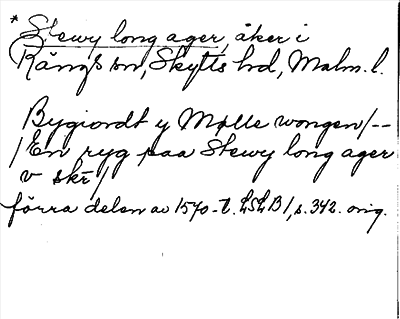 * Stewy long ager, åker i
Rängs sn, Skytts hd, Malm. l.
Bygiordt y Mølle wongen /--
/ En ryg paa Stewy long ager
v skr /
förra delen av 1570-t. LSLB 1, s. 342. orig.